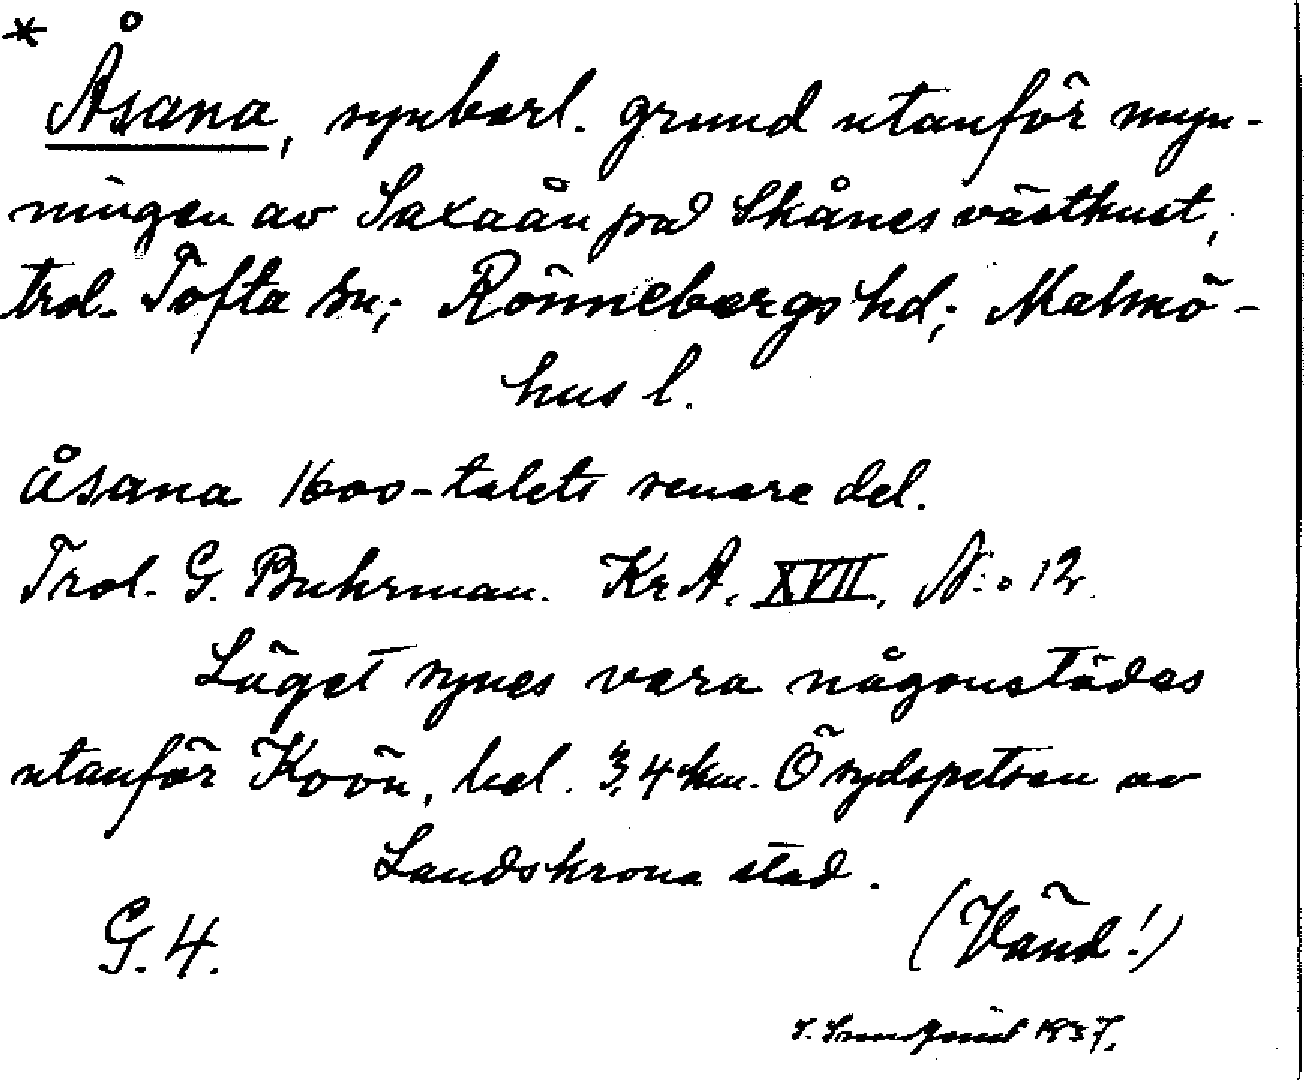 * Åsana, synbarl. grund utanför myn-
ningen av Saxaån på Skånes västkust,
trol. Tofta sn; Rönnebergs hd; Malmö-
hus l.
åsana 1600-talets senare del.
Trol. G. Buhrman. Kr A, XVII, N:o 12.
Läget synes vara någonstädes
utanför Kovön, bel. 3,4 km. Ö sydspetsen av
Landskrona stad.
G. 4.
(Vänd!)
1937.